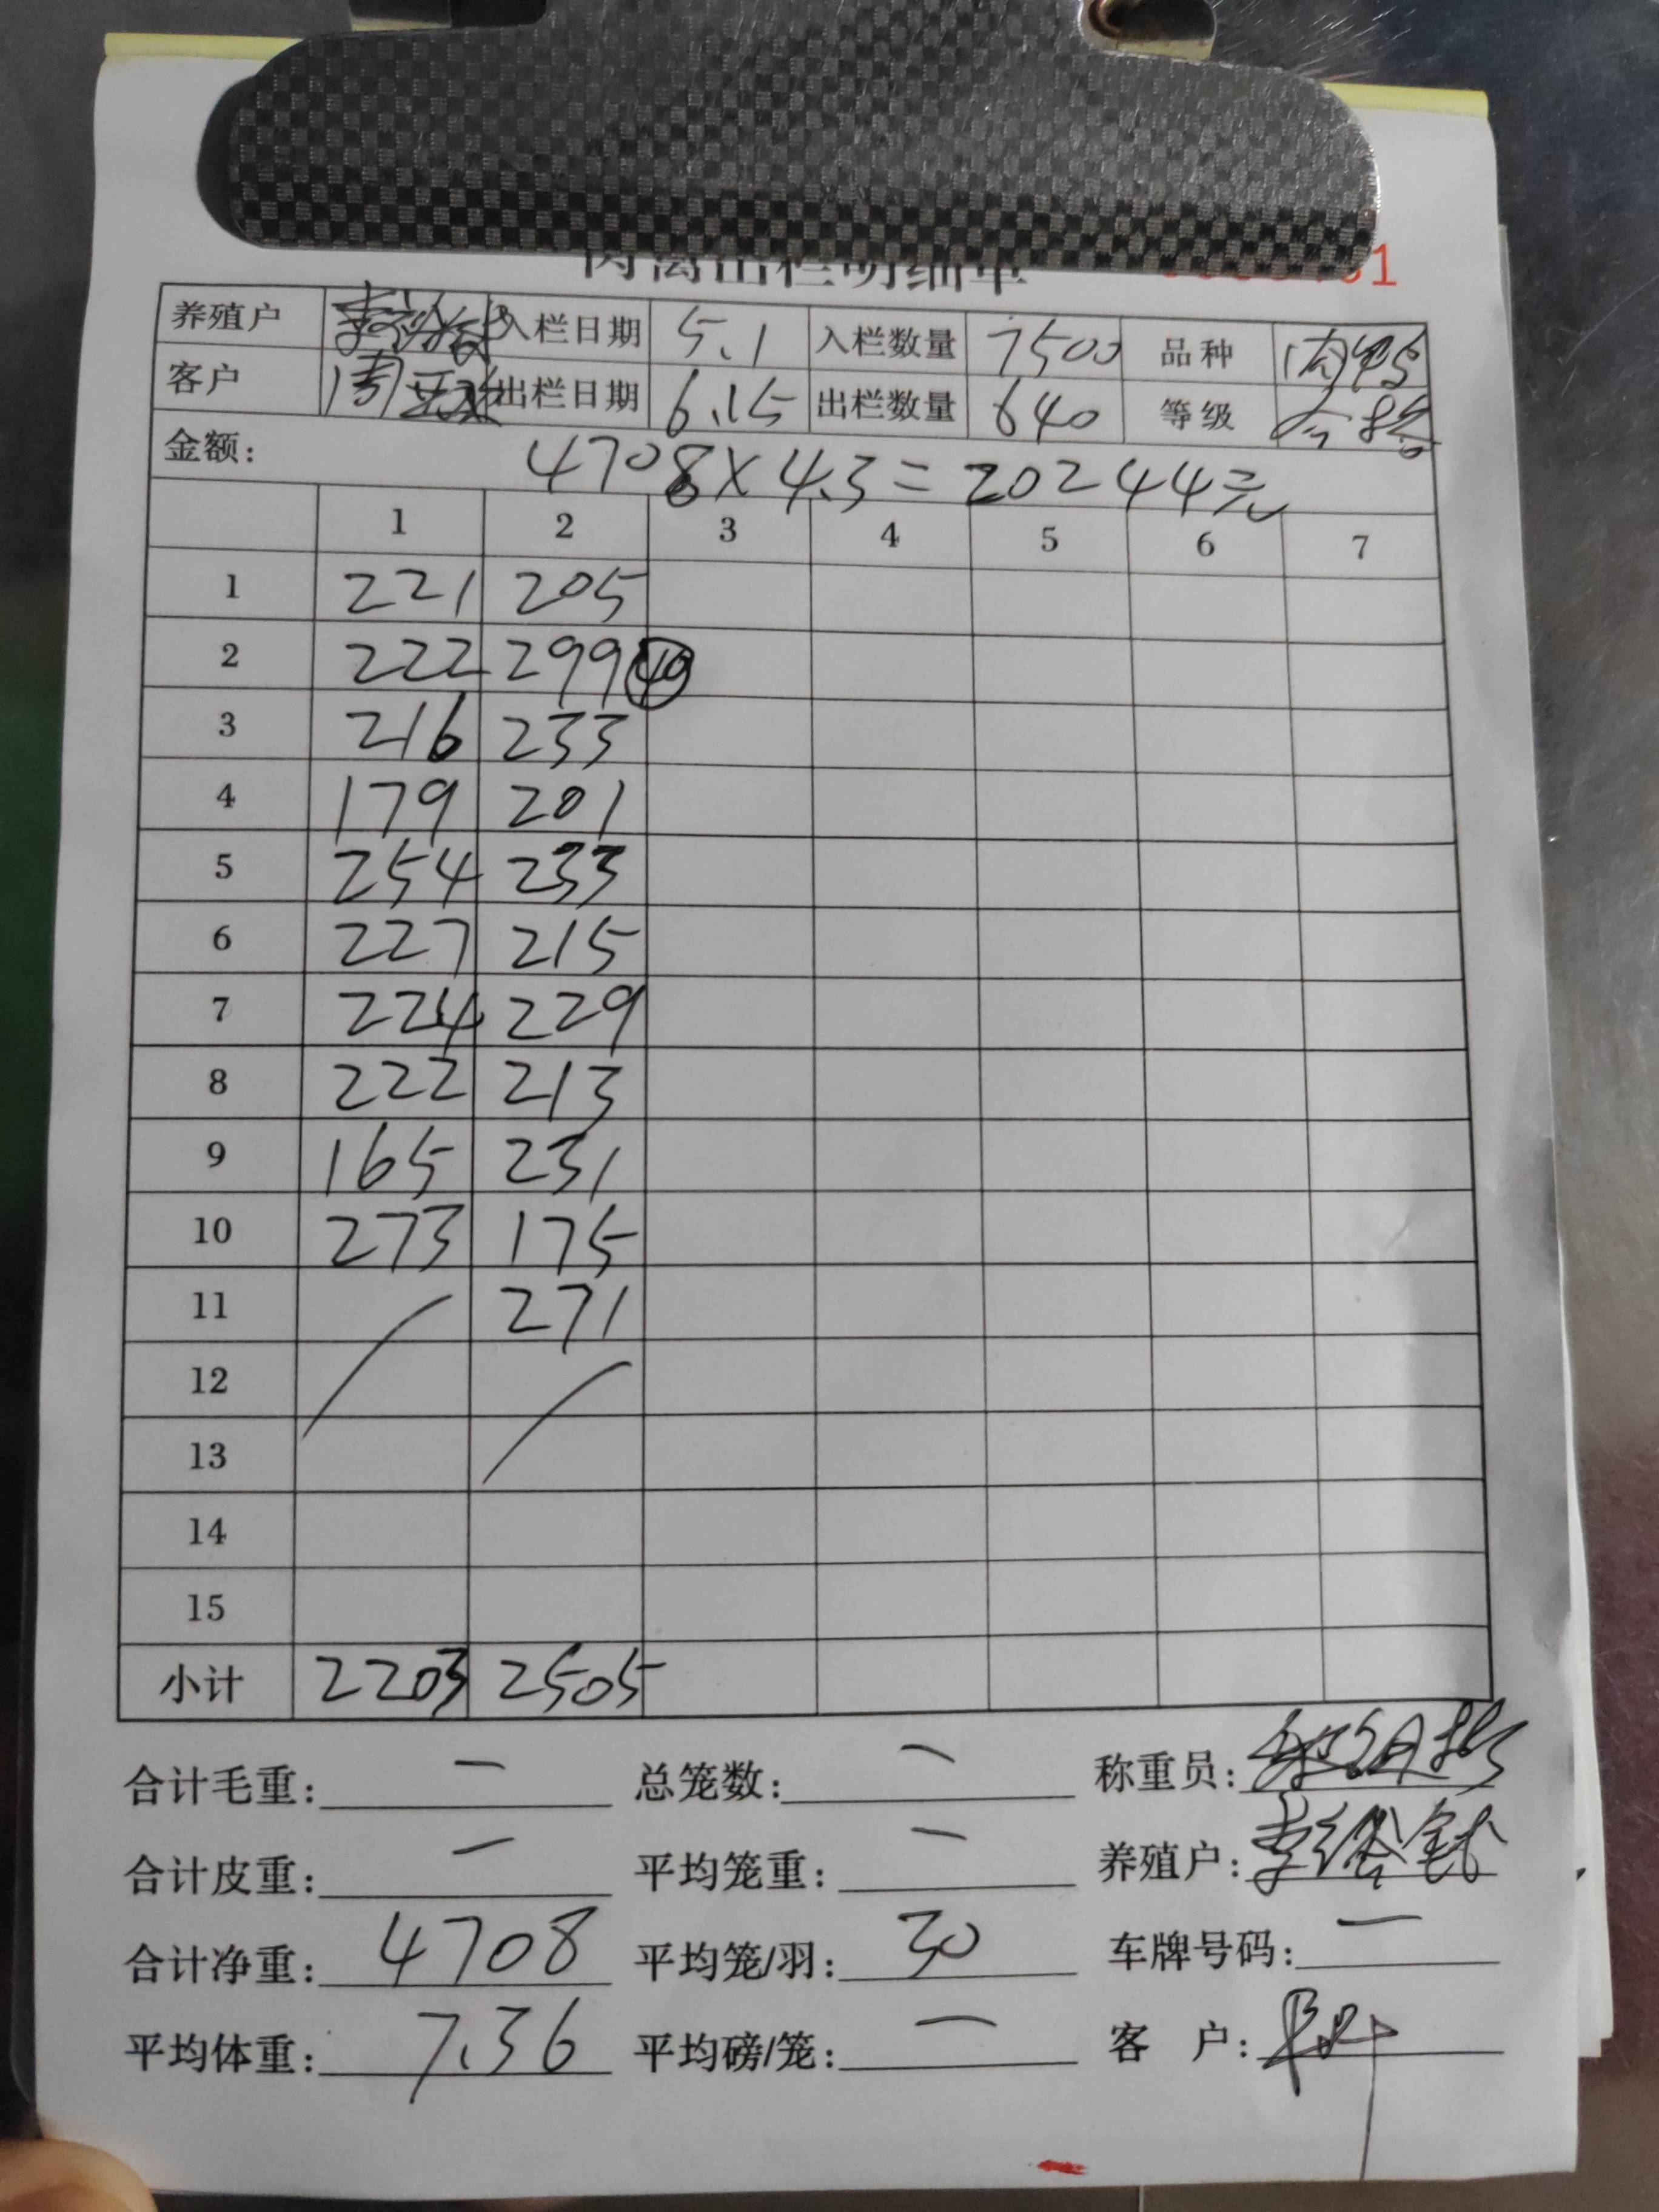 肉禽出栏明细单 1
养殖户 李 入栏日期 5.1 入栏数量 7500 品种 肉鸭
客户 周 出栏日期 6.15 出栏数量 640 等级 合格
金额: 4708×4.3=20244元
1 2 3 4 5 6 7
1 221 205
2 222 299 40
3 216 233
4 179 201
5 254 233
6 227 215
7 224 229
8 222 213
9 165 231
10 273 175
11 271
12
13
14
15
小计 2203 2505
合计毛重: — 总笼数: — 称重员:
合计皮重: — 平均笼重: — 养殖户: 李
合计净重: 4708 平均笼/羽: 30 车牌号码: —
平均体重: 7.36 平均磅/笼: — 客 户: